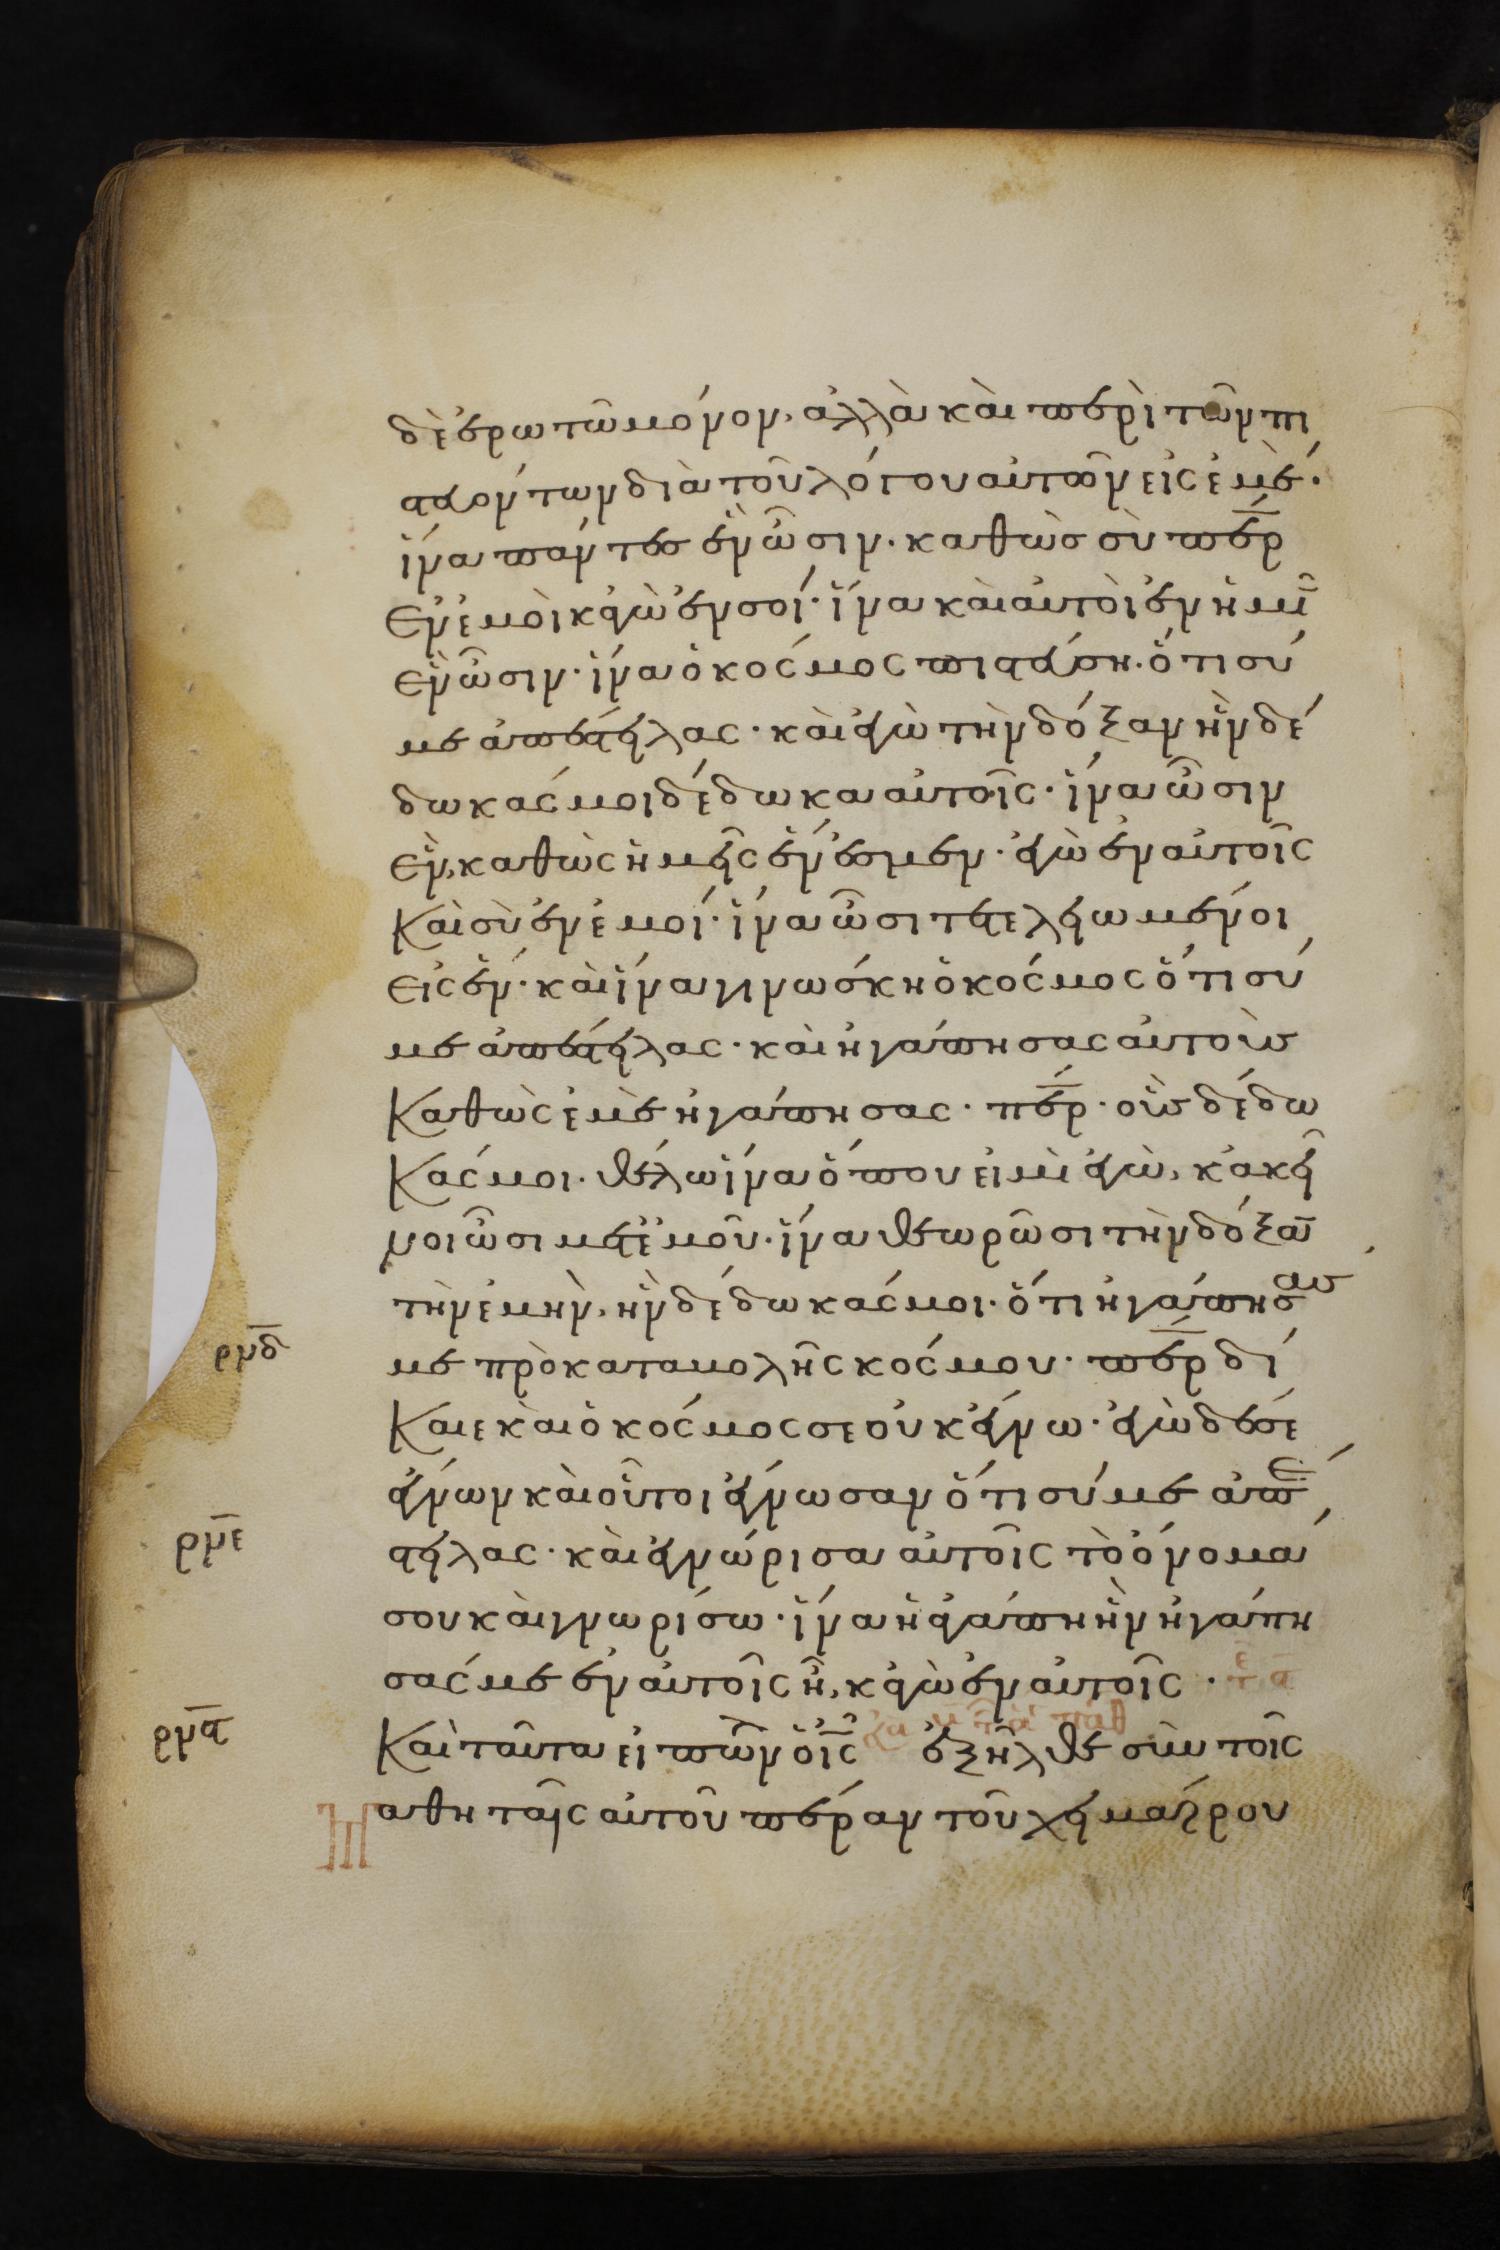 δὲ ἐρωτῶ μόνον, ἀλλὰ καὶ περὶ τῶν πι
στευόντων διὰ τοῦ λόγου αὐτῶν εἰς ἐμέ·
ἵνα πάντες ἓν ὦσιν· καθὼς σὺ πε̅ρ
ἐν ἐμοὶ κἀγὼ ἐν σοί· ἵνα καὶ αὐτοὶ ἐν ἡμῖ
ἓν ὦσιν· ἵνα ὁ κόσμος πιστεύση· ὅτι σύ
με ἀπέστειλας· καὶ ἐγὼ τὴν δόξαν ἣν δέ
δωκάς μοι δέδωκα αὐτοῖς· ἵνα ὦσιν
ἓν, καθὼς ἡμεῖς ἕν ἐσμεν· ἐγὼ ἐν αὐτοῖς
καὶ σὺ ἐν ἐμοί· ἵνα ὦσι τετελειωμένοι
εἰς ἕν· καὶ ἵνα γινωσκη ὁ κόσμος ὅτι σύ
με ἀπέστειλας· καὶ ἠγάπησας αὐτοὺς
καθὼς ἐμὲ ἠγάπησας· πε̅ρ· οὓς δέδω
κάς μοι· θέλω ἵνα ὅπου εἰμὶ ἐγὼ, κἀκεῖ
νοι ὦσι μετ ἐμοῦ· ἵνα θεωρῶσι τὴν δόξα̅
τὴν ἐμὴν, ἣν δέδωκάς μοι· ὅτι ἠγάπησας
ρμδ̅ με πρὸ καταβολῆς κόσμου· πε̅ρ δί
καιε καὶ ὁ κόσμος σε οὐκ ἔγνω· ἐγὼ δέ σε
ἔγνων καὶ οὗτοι ἔγνωσαν ὅτι σύ με ἀπέ
ρμε̅ στειλας· καὶ ἐγνώρισα αὐτοῖς τὸ ὄνομά
σου καὶ γνωρίσω· ἵνα ἡ ἀγάπη ἣν ἠγάπη
σάς με ἐν αὐτοῖς ἦ, κἀγὼ ἐν αὐτοῖς·
ρμϛ̅ Καὶ ταῦτα εἰπὼν ὁ ι̅ς ἐξῆλθε σὺν τοῖς
Μαθηταῖς αὐτοῦ πέραν τοῦ χειμάρρου